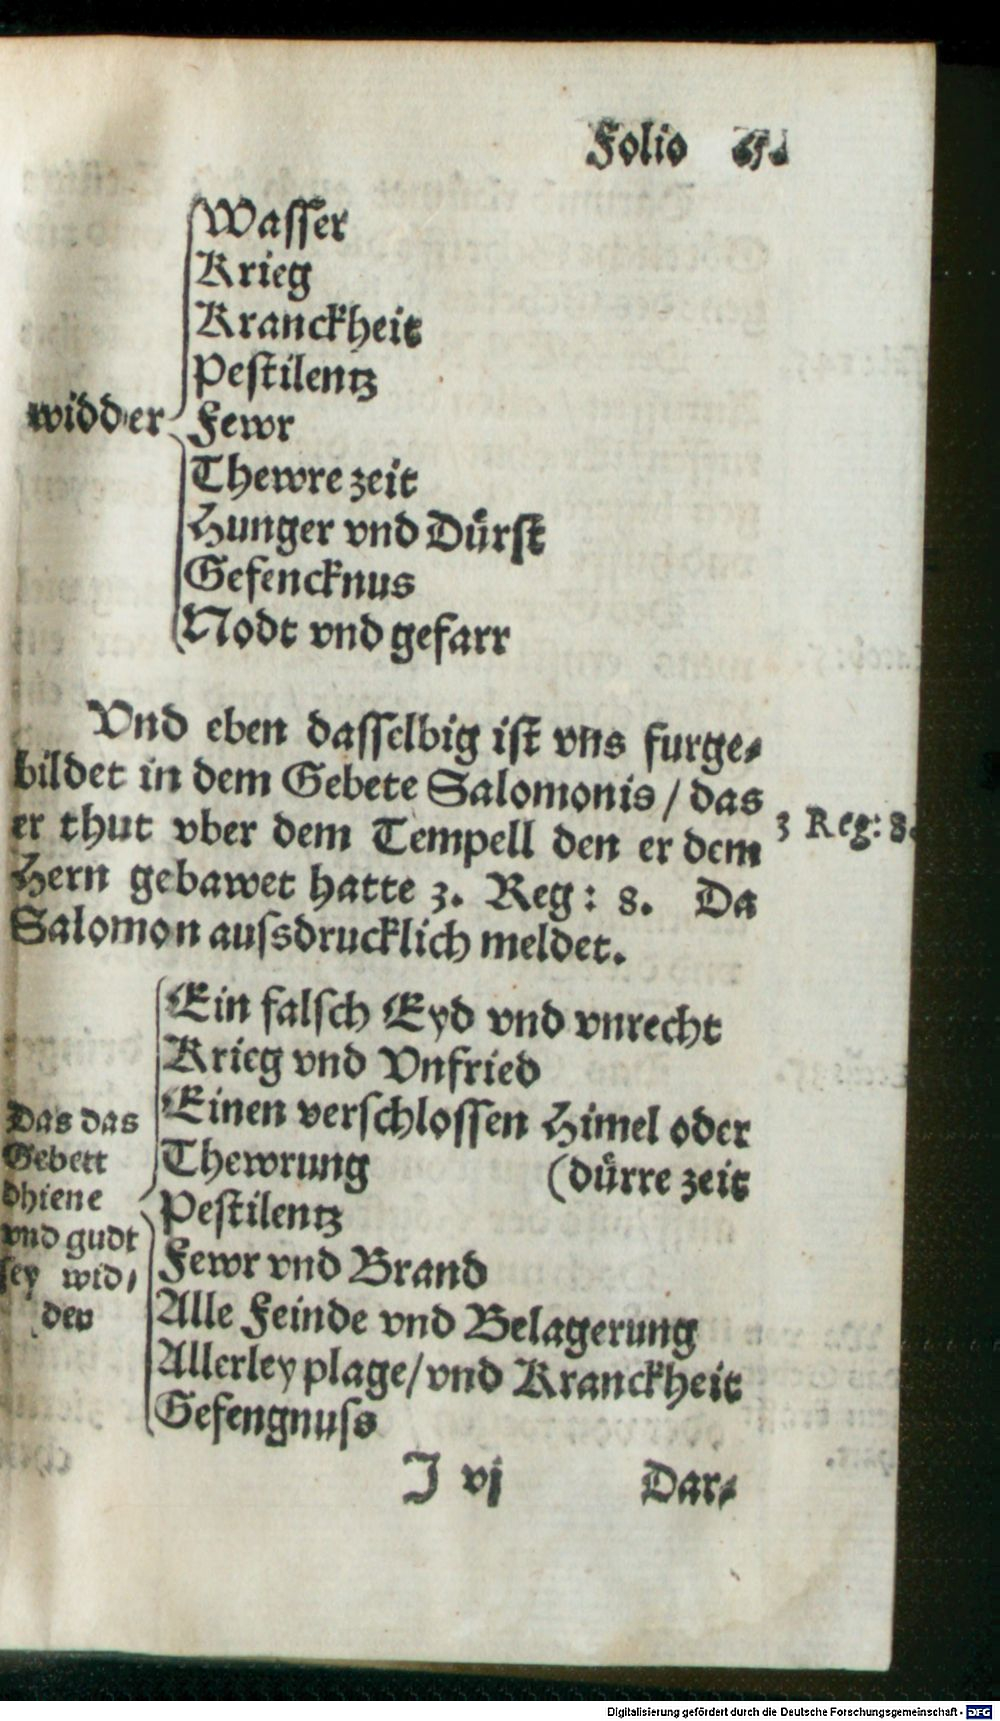 Folio
Wasser
Krieg
Kranckheit
Pestilentz
widder Fewr
Thewre zeit
Hunger vnd Dürst
Gefencknus
Nodt vnd gefarr
Vnd eben dasselbig ist vns furge-
bildet in dem Gebete Salomonis / das
er thut vber dem Tempell den er dem
Hern gebawet hatte 3. Reg: 8. Da
Salomon aussdrucklich meldet.
3 Reg: 8.
Das das
Gebett
dhiene
vnd gudt
sey wid-
der
Ein falsch Eyd vnd vnrecht
Krieg vnd Vnfried
Einen verschlossen Himel oder
Thewrung (dürre zeit
Pestilentz
Fewr vnd Brand
Alle Feinde vnd Belagerung
Allerley plage/vnd Kranckheit
Gefengnuss
J vj Dar-
Digitalisierung gefördert durch die Deutsche Forschungsgemeinschaft - DFG